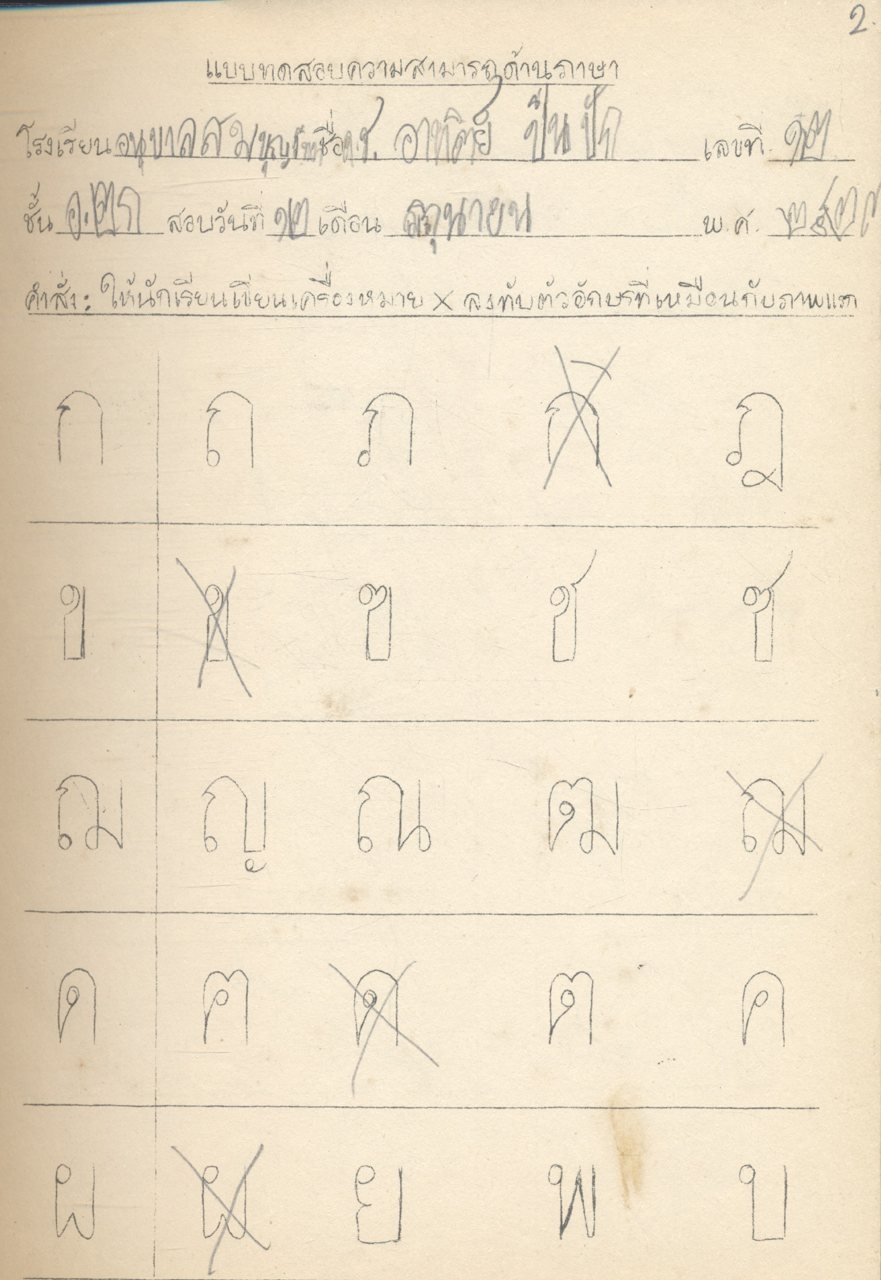 2.
แบบทดสอบความสามารถด้านภาษา
โรงเรียน อนุบาลสมบุญ ชื่อ ด.ช. อาทิตย์ ปิ่นปัก เลขที่ ๑๒
ชั้น อ.๒ก สอบวันที่ ๑๒ เดือน มิถุนายน พ.ศ. ๒๕๒๗
คำสั่ง: ให้นักเรียนเขียนเครื่องหมาย × ลงทับตัวอักษรที่เหมือนกับภาพแรก
ก ถ ภ ก ฎ
ข ข ฃ ช ซ
ฌ ญ ณ ฒ ฌ
ด ฅ ด ต ค
ผ ผ ย พ บ